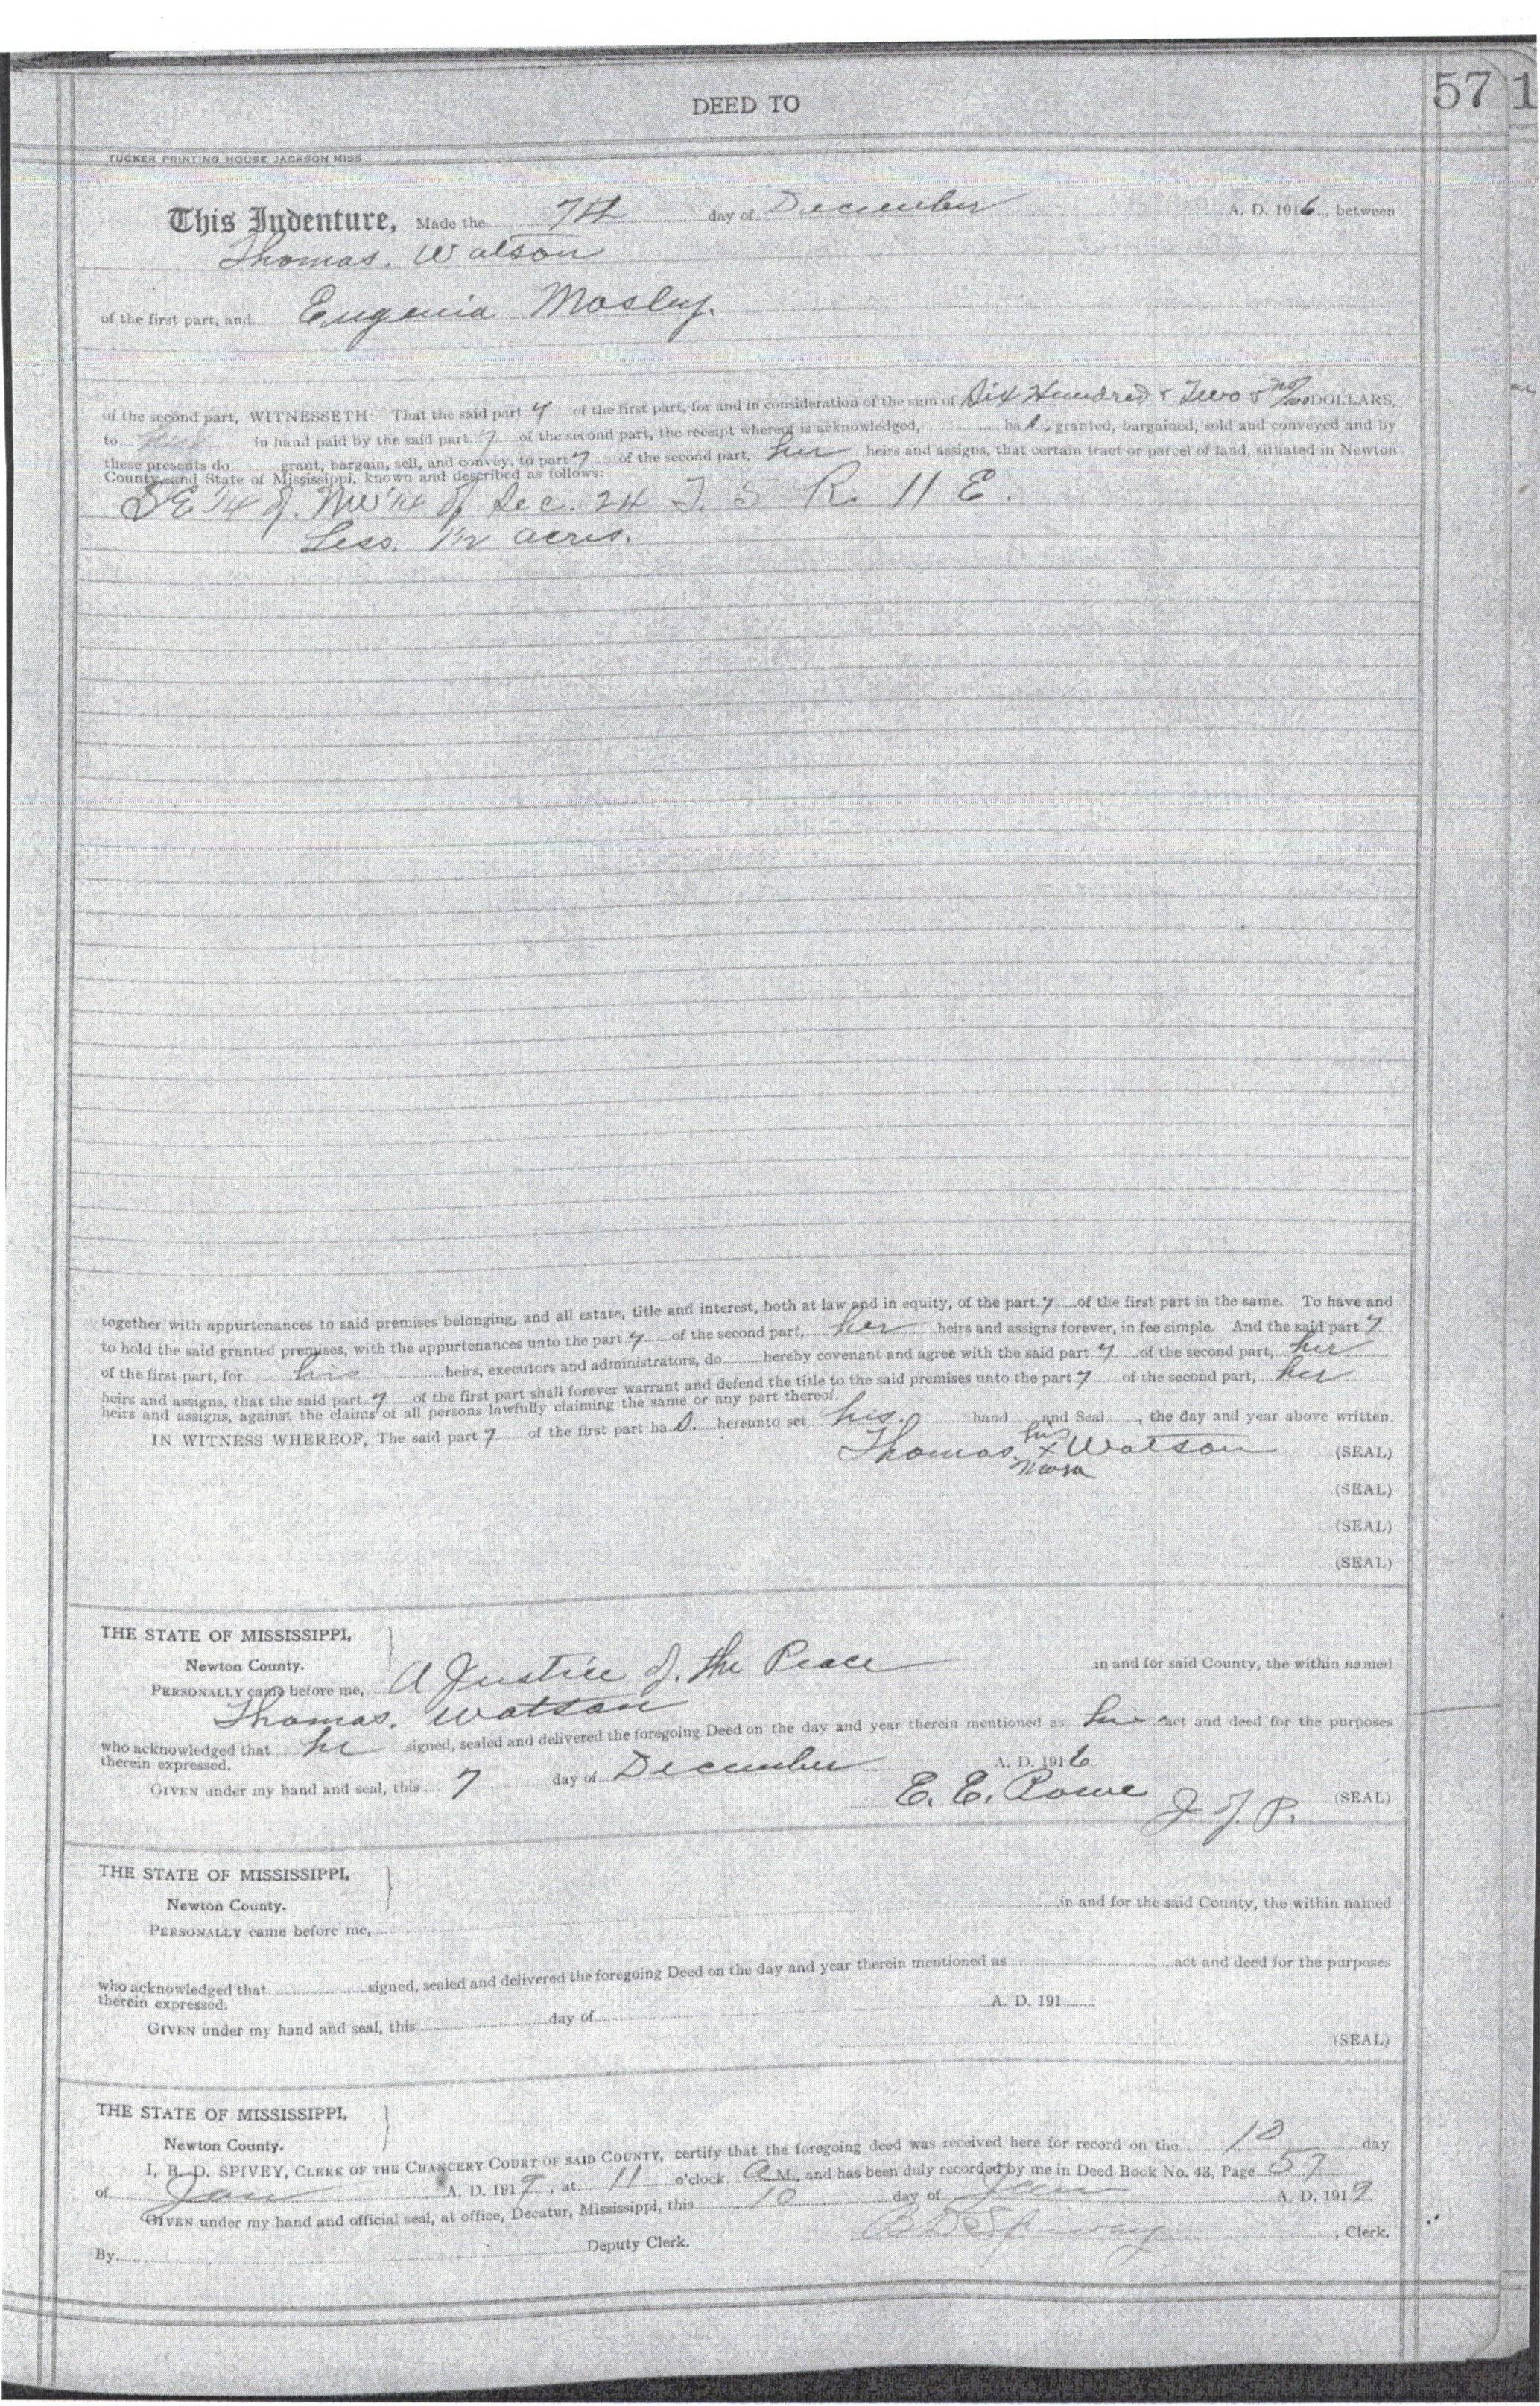 57 1
DEED TO
TUCKER PRINTING HOUSE JACKSON MISS
This Indenture, Made the 7th day of December A. D. 1916, between
Thomas. Watson
of the first part, and Eugenia Mosley.
of the second part, WITNESSETH: That the said part y of the first part, for and in consideration of the sum of Six Hundred & Two & no/100 DOLLARS,
to in hand paid by the said part y of the second part, the receipt whereof is acknowledged, ha s, granted, bargained, sold and conveyed and by
these presents do grant, bargain, sell, and convey, to part y of the second part, her heirs and assigns, that certain tract or parcel of land, situated in Newton
County, and State of Mississippi, known and described as follows:
SE 1/4 of NW 1/4 of Sec. 24 T. 5 R. 11 E.
Less. 1 1/2 acres.
together with appurtenances to said premises belonging, and all estate, title and interest, both at law and in equity, of the part y of the first part in the same. To have and
to hold the said granted premises, with the appurtenances unto the part y of the second part, her heirs and assigns forever, in fee simple. And the said part y
of the first part, for his heirs, executors and administrators, do hereby covenant and agree with the said part y of the second part, her
heirs and assigns, that the said part y of the first part shall forever warrant and defend the title to the said premises unto the part y of the second part, her
heirs and assigns, against the claims of all persons lawfully claiming the same or any part thereof.
IN WITNESS WHEREOF, The said part y of the first part ha s. hereunto set his. hand and Seal , the day and year above written.
his
Thomas. x Watson (SEAL)
mark
(SEAL)
(SEAL)
(SEAL)
THE STATE OF MISSISSIPPI,
Newton County.
PERSONALLY came before me, A Justice of the Peace in and for said County, the within named
Thomas. Watson
who acknowledged that he signed, sealed and delivered the foregoing Deed on the day and year therein mentioned as his act and deed for the purposes
therein expressed.
GIVEN under my hand and seal, this 7 day of December A. D. 1916
E. E. Rowe J. of P. (SEAL)
THE STATE OF MISSISSIPPI,
Newton County.
PERSONALLY came before me, in and for the said County, the within named
who acknowledged that signed, sealed and delivered the foregoing Deed on the day and year therein mentioned as act and deed for the purposes
therein expressed.
GIVEN under my hand and seal, this day of A. D. 191
(SEAL)
THE STATE OF MISSISSIPPI,
Newton County.
I, B. D. SPIVEY, CLERK OF THE CHANCERY COURT OF SAID COUNTY, certify that the foregoing deed was received here for record on the 10 day
of Jan A. D. 1919, at 11 o'clock A M., and has been duly recorded by me in Deed Book No. 43, Page 57
GIVEN under my hand and official seal, at office, Decatur, Mississippi, this 10 day of Jan A. D. 1919
B D Spivey, Clerk.
By Deputy Clerk.